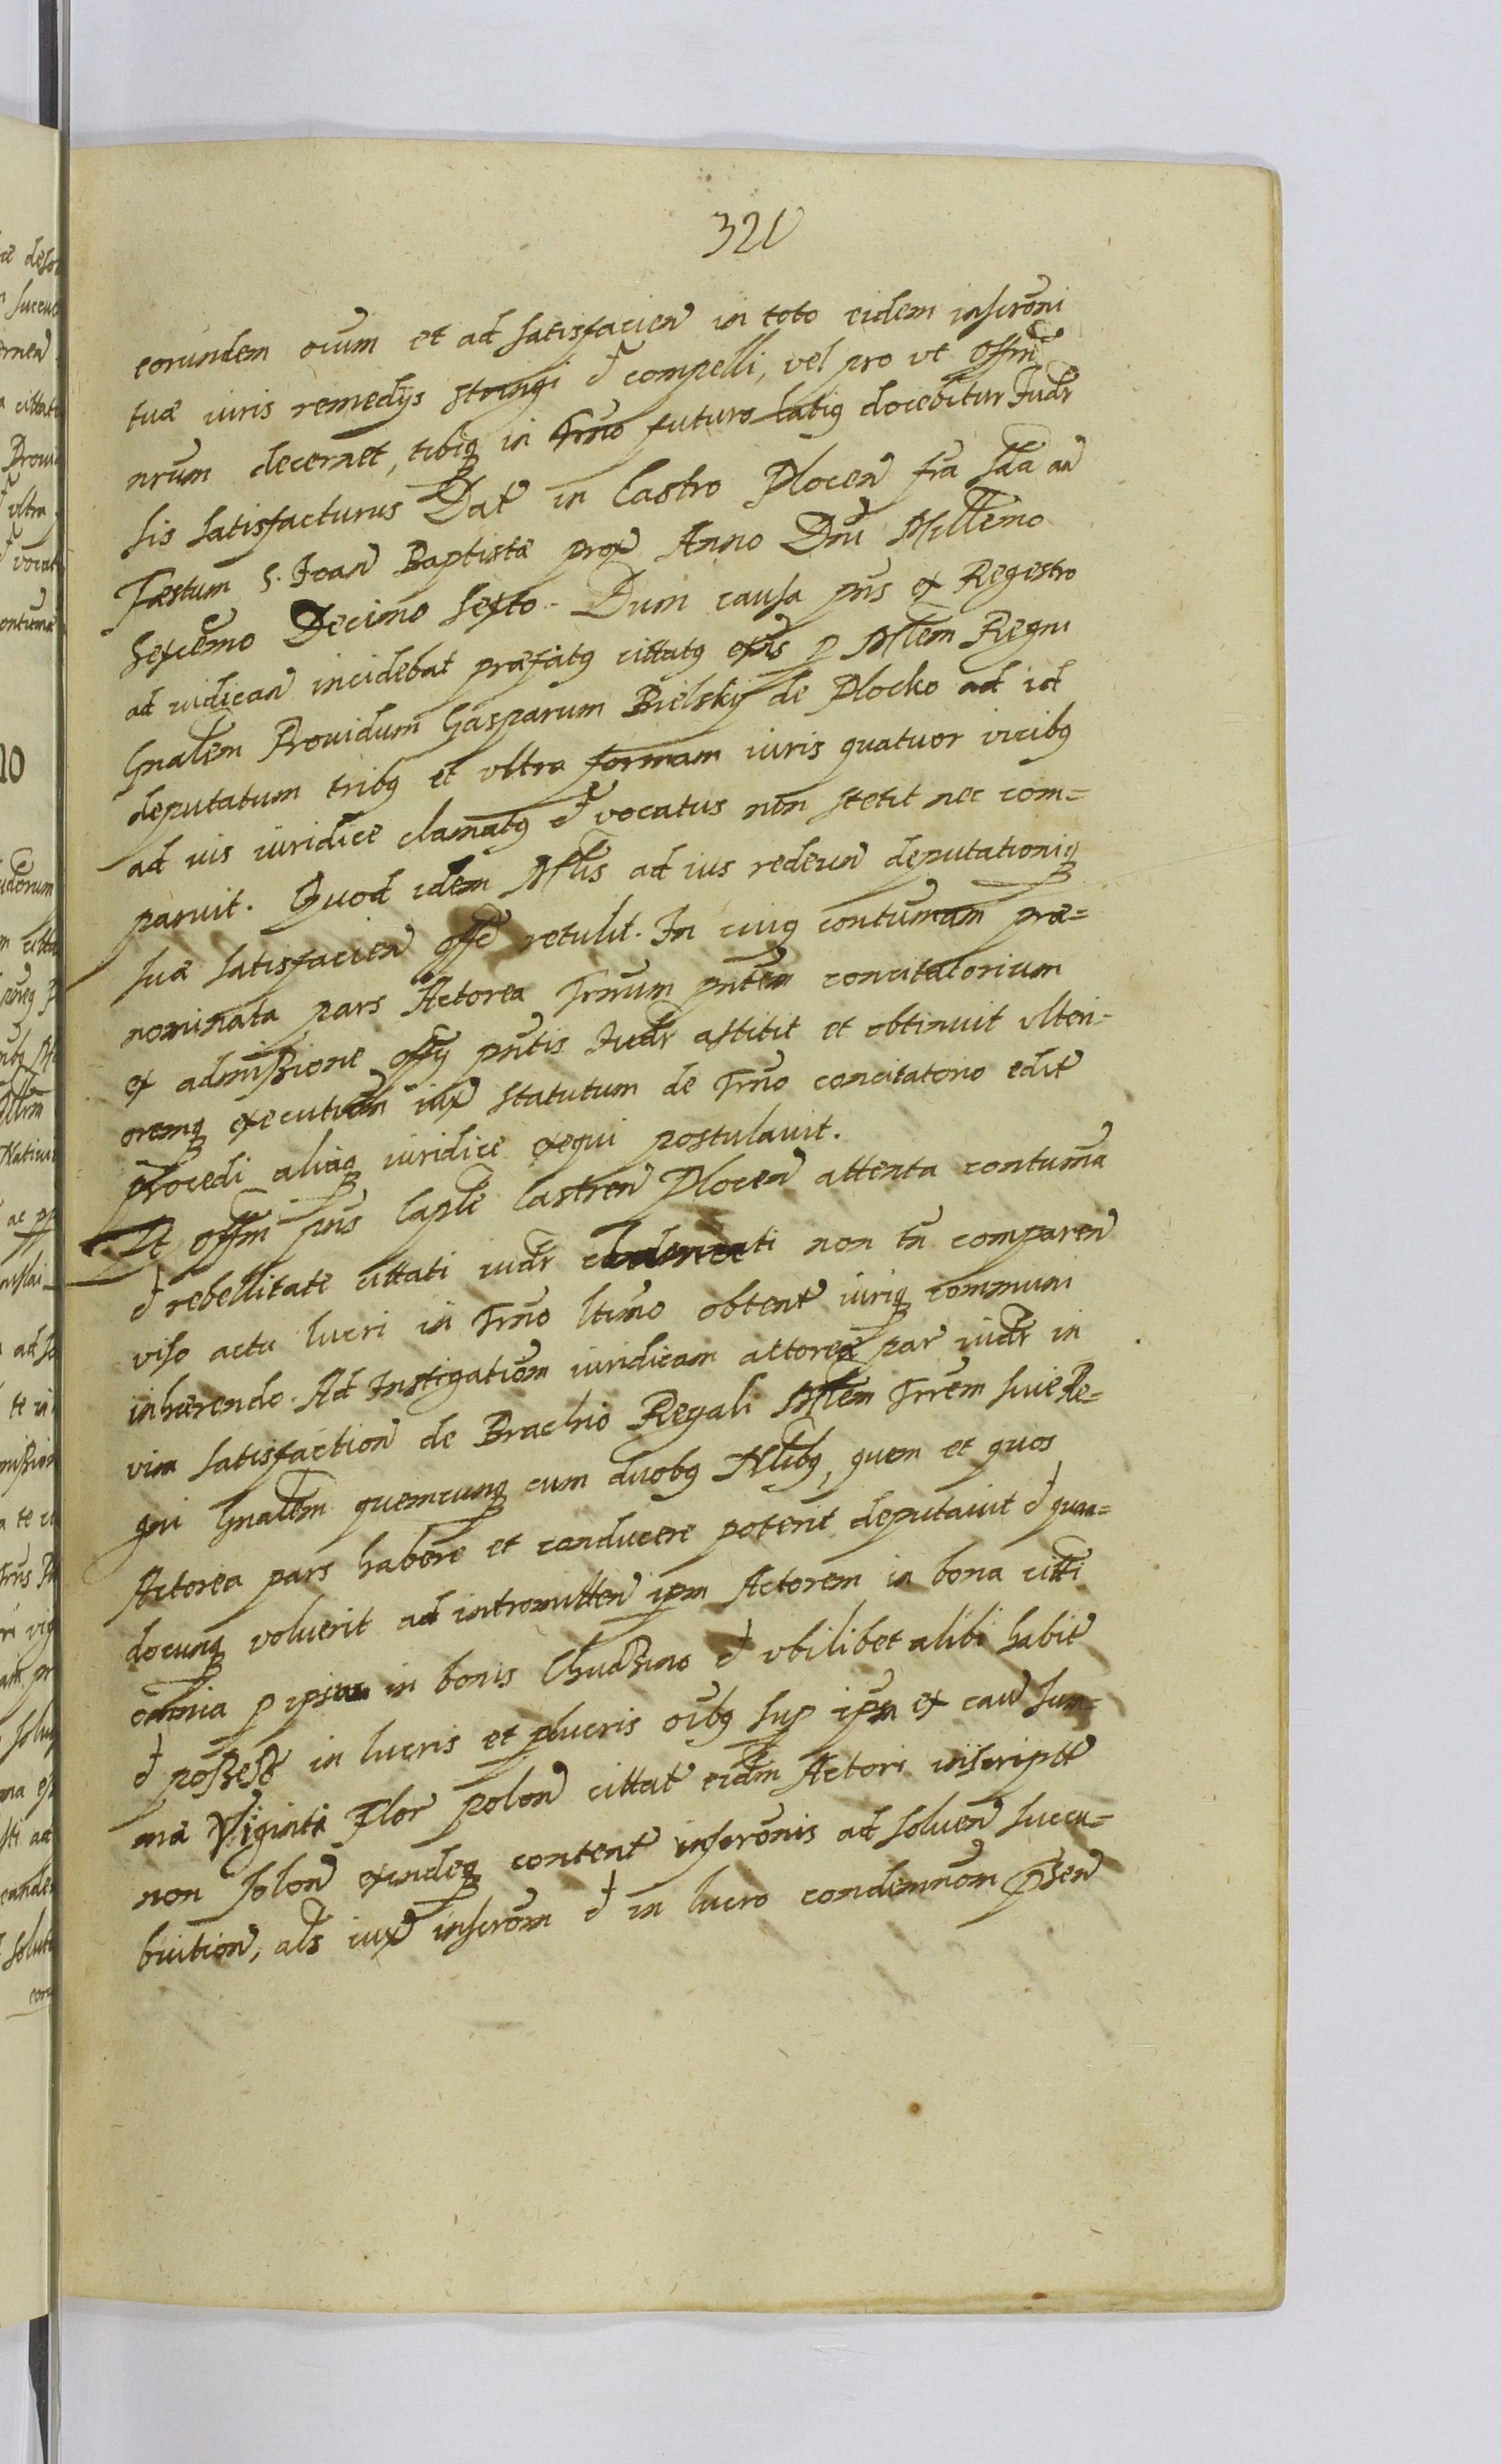 321
eorundem oium et ad satisfacien in toto eidem inscroni
tuæ iuris remedijs stringi & compelli, vel pro vt Offm
nrum decernet, tibiq in Trno futuro latig docebitur Judr
sis satisfacturus Dat in Castro Plocen fra sda an
Fæstum S. Joan Baptistæ prox Anno Dni Millemo
sexcemo Decimo sexto. Dum causa pns ex Regestro
ad iudican incidebat præfatg cittatg exns p Mlem Regni
Gnalem Prouidum Gasparum Bielskij de Plocko ad id
deputatum tribg et vltra formam iuris quatuor vicibg
ad ius iuridice clamatg & vocatus non stetit nec com=
paruit. Quod idem Mlis ad ius redeun deputationiq
suæ satisfacien offo retulit. In cuig contumam præ=
nominata pars Actorea Trnum pntem concitatorium
ex admißione offij pntis Judr astitit et obtinuit vlteri=
oremq executiom iux statutum de Trno concitatorio edit
procedi aliaq iuridice exequi postulauit.
Et offm pns Caple Castren Plocen attenta contuma
& rebellitate cittati iudr non tn comparen
viso actu lucri in Trno ltimo obtent iuriq communi
inhærendo. Ad Instigatiom iuridicam actoreæ par iudr in
vim satisfaction de Brachio Regali Mlem Trrem siue Re=
gni Gnalem quemcunq cum duobg Nlibg, quem et quos
Actorea pars habere et conducere poterit deputauit & quan=
docunq voluerit ad intromitten ipm Actorem in bona citti
omnia p ipsum in bonis Chudzino & vbilibet alibi habit
& poßeß in lucris et plucris oibg sup ipsm ex cau sum=
mæ Viginti Flor polon cittat eidm Actori inscript
non solon exindeq content inscronis ad soluen succu=
buition, als iux inscrom & in lucro condemnom psen